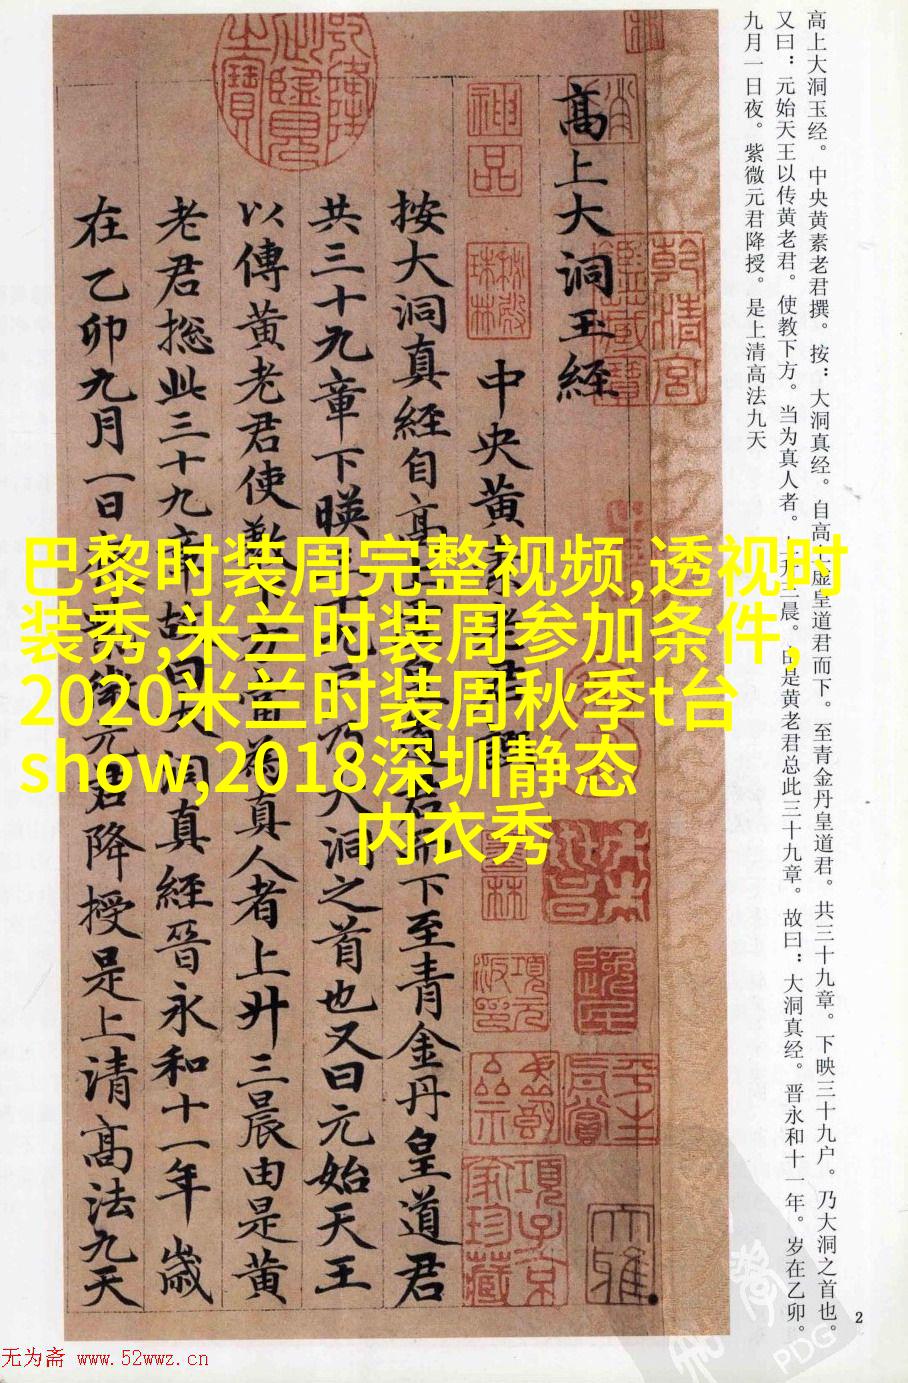 高上大洞玉经。中央黄素老君撰。按：大洞真经。自高上虚皇道君而下。至青金丹皇道君。共三十九章。下映三十九户。乃大洞之首也。
又曰：元始天王以传黄老君。使教下方。当为真人者。上升三晨。由是黄老君总此三十九章。故曰：大洞真经。晋永和十一年。岁在乙卯。
九月一日夜。紫微元君降授。是上清高法九天
高上大洞玉經
中央黄素老君撰
按大洞真經自高上虚皇道君而下至青金丹皇道君
共三十九章下暎三十九户乃大洞之首也又曰元始天王
以傳黄老君使教下方當為真人者上升三晨由是黄
老君捴此三十九章故曰大洞真經晉永和十一年歲
在乙卯九月一日夜紫微元君降授是上清高法九天
乾清宮鑑藏寶
神品
項元汴印
平生真賞
項子京家珍藏
巴黎时装周完整视频,透视时
装秀,米兰时装周参加条件,
2020米兰时装周秋季t台
show,2018深圳静态
内衣秀
2
PDG
无为斋 www.52wwz.cn